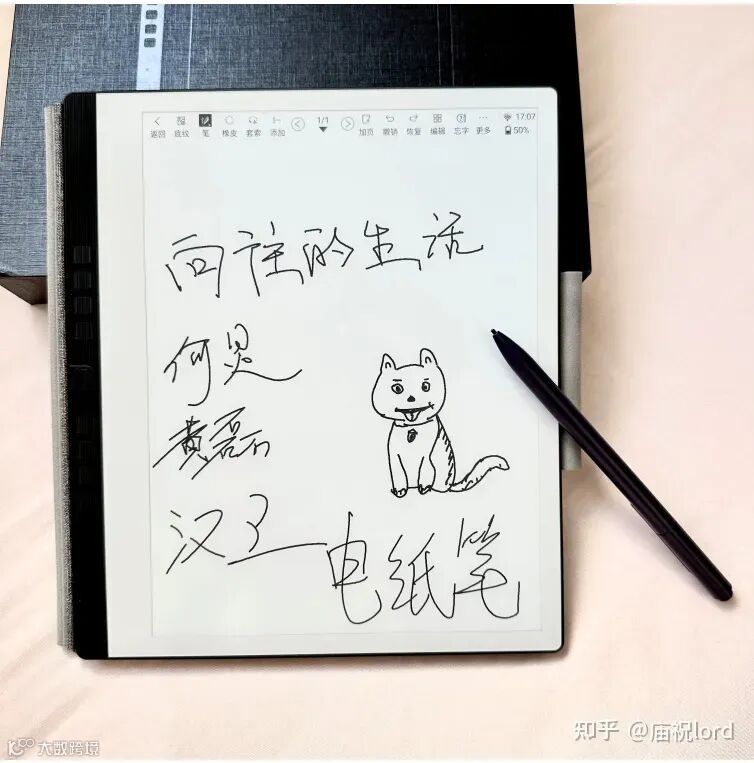 返回 底纹 笔 橡皮 套索 添加 1/1 加页 撤销 恢复 编辑 忘字 更多 17:07 50%
向往的生活
何炅
黄磊
汉王
电纸笔
知乎 @庙祝lord
大数跨境